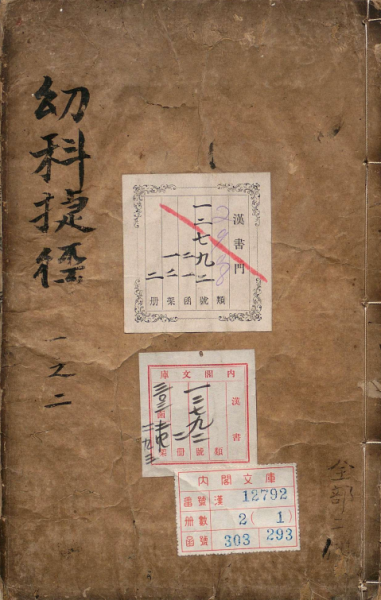 幼科捷徑
一之二
漢書門
一二七九二
二一
一二
二
類
號
函
架
册
内閣文庫
漢書
一二七九二
二
類
號
册
架
内閣文庫
番號 漢 12792
册數 2 ( 1 )
函號 303 293
全部二